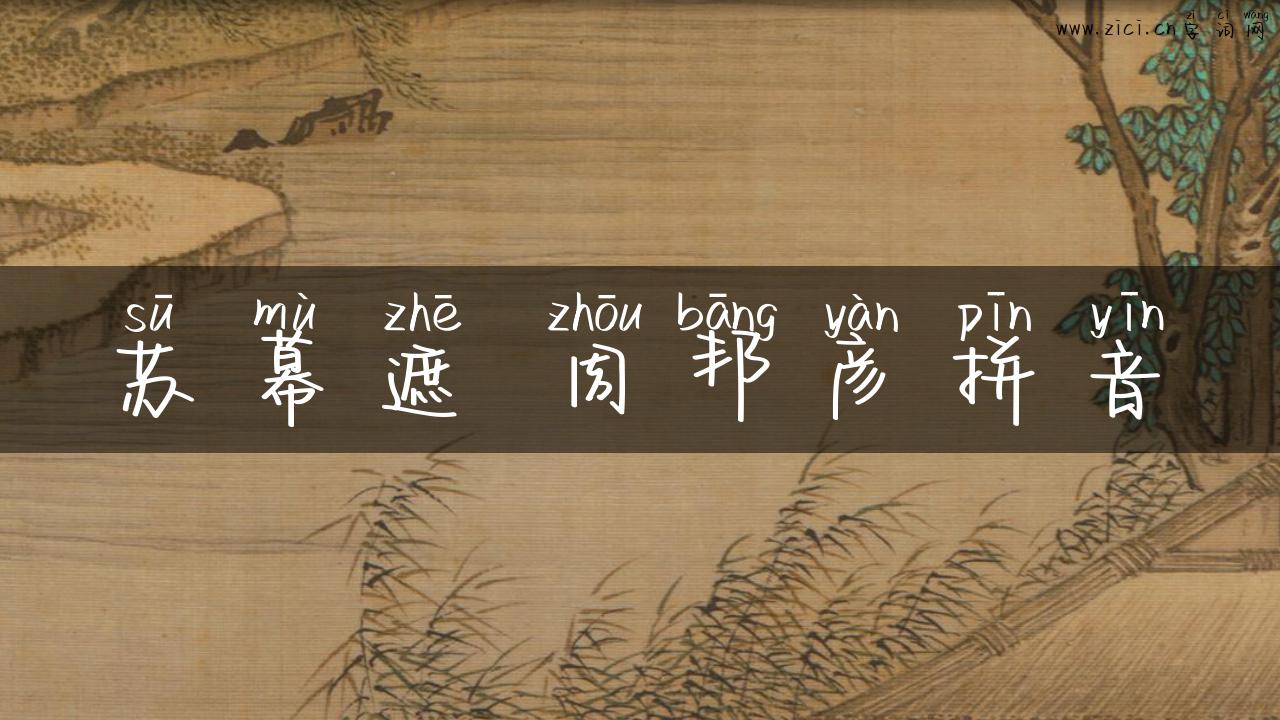 zì cí wǎng
www.zici.cn字词网
sū mù zhē zhōu bāng yàn pīn yīn
苏幕遮 周邦彦拼音